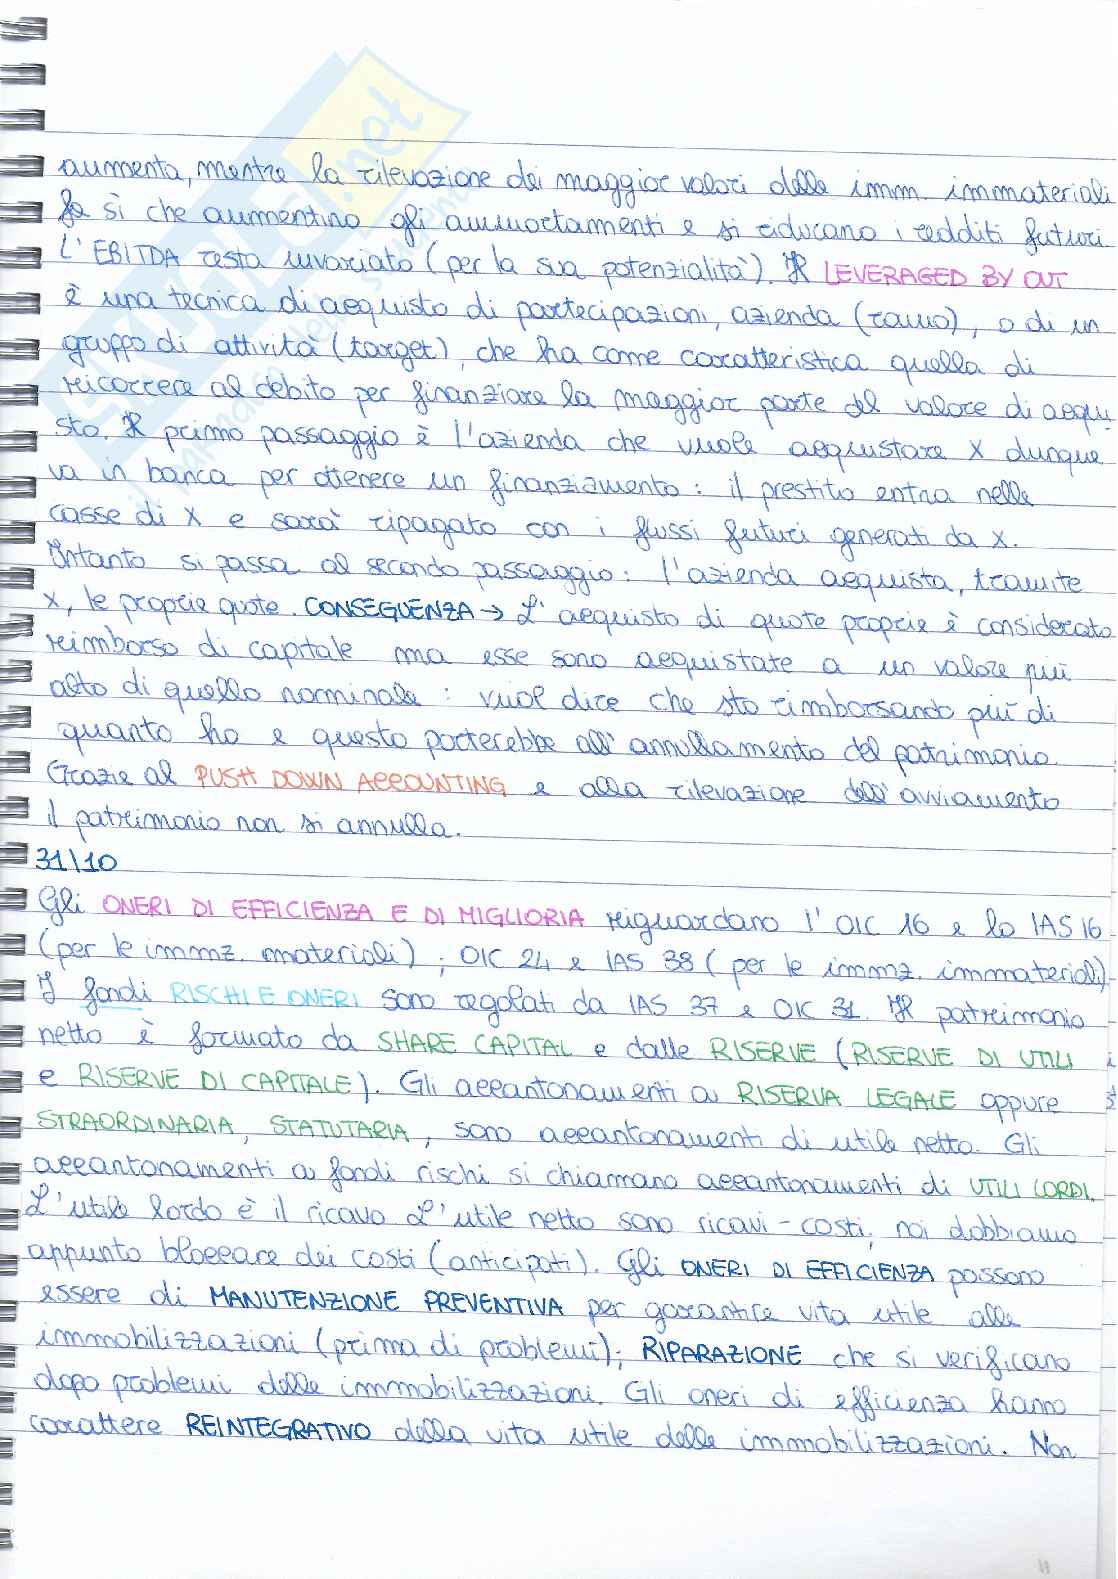 aumenta, mentre la rilevazione dei maggior valori delle imm. immateriali
fa sì che aumentino gli ammortamenti e si riducano i redditi futuri.
L'EBITDA resta invariato (per la sua potenzialità). Il LEVERAGED BY OUT
è una tecnica di acquisto di partecipazioni, azienda (ramo), o di un
gruppo di attività (target), che ha come caratteristica quella di
ricorrere al debito per finanziare la maggior parte del valore di acqui
sto. Il primo passaggio è l'azienda che vuole acquistare X dunque
va in banca per ottenere un finanziamento: il prestito entra nelle
casse di X e sarà ripagato con i flussi futuri generati da X.
Intanto si passa al secondo passaggio: l'azienda acquista, tramite
X, le proprie quote. CONSEGUENZA → L'acquisto di quote proprie è considerato
reimborso di capitale ma esse sono acquistate a un valore più
alto di quello nominale: vuol dire che sto rimborsando più di
quanto ho e questo porterebbe all'annullamento del patrimonio.
Grazie al PUSH DOWN ACCOUNTING e alla rilevazione dell'avviamento
il patrimonio non si annulla.
31\10
Gli ONERI DI EFFICIENZA E DI MIGLIORIA riguardano l'OIC 16 e lo IAS 16
(per le immz. materiali); OIC 24 e IAS 38 (per le immz. immateriali)
I fondi RISCHI E ONERI sono regolati da IAS 37 e OIC 31. Il patrimonio
netto è formato da SHARE CAPITAL e dalle RISERVE (RISERVE DI UTILI
e RISERVE DI CAPITALE). Gli accantonamenti a RISERVA LEGALE oppure
STRAORDINARIA, STATUTARIA, sono accantonamenti di utile netto. Gli
accantonamenti a fondi rischi si chiamano accantonamenti di UTILI LORDI.
L'utile lordo è il ricavo L'utile netto sono ricavi-costi, noi dobbiamo
appunto bloccare dei costi (anticipati). Gli ONERI DI EFFICIENZA possono
essere di MANUTENZIONE PREVENTIVA per garantire vita utile alle
immobilizzazioni (prima di problemi); RIPARAZIONE che si verificano
dopo problemi delle immobilizzazioni. Gli oneri di efficienza hanno
carattere REINTEGRATIVO della vita utile delle immobilizzazioni. Non
11